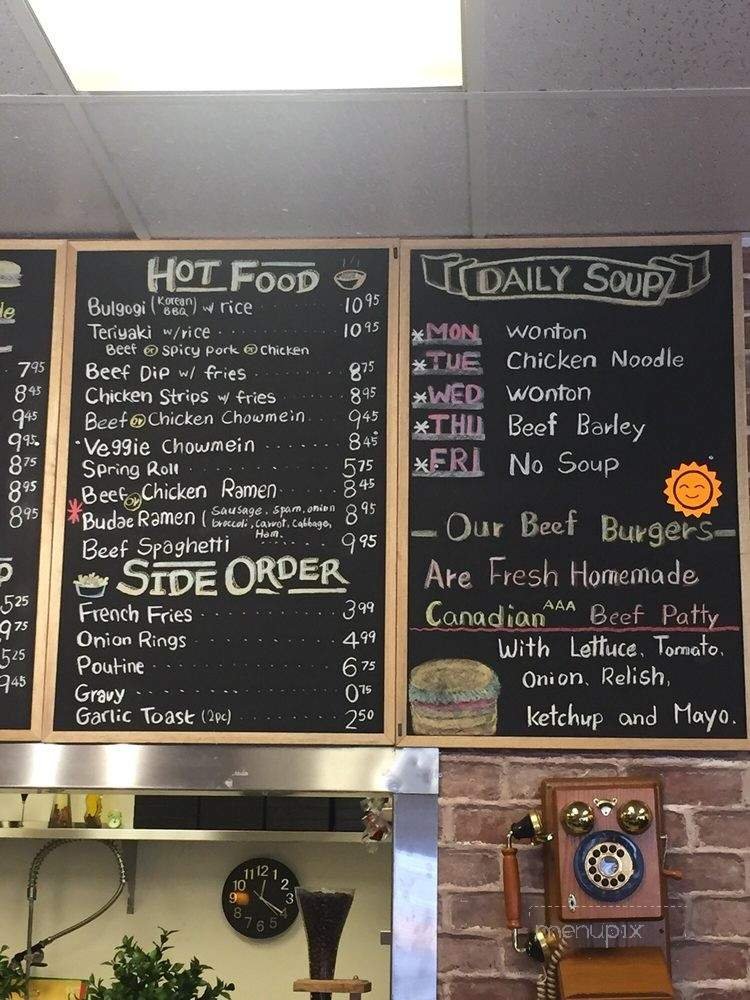 le
7.95
8.45
9.45
9.95
8.75
8.95
8.95
P
5.25
9.75
5.25
9.45
HOT FOOD
Bulgogi (Korean BBQ) w rice 10.95
Teriyaki w/rice 10.95
Beef or spicy pork or Chicken
Beef Dip w/ fries 8.75
Chicken Strips w/ fries 8.95
Beef or Chicken Chowmein 9.45
Veggie Chowmein 8.45
Spring Roll 5.75
Beef or Chicken Ramen 8.45
*Budae Ramen (Sausage, spam, onion 8.95
broccoli, carrot, cabbage,
Ham
Beef Spaghetti 9.95
SIDE ORDER
French Fries 3.99
Onion Rings 4.99
Poutine 6.75
Gravy 0.75
Garlic Toast (2pc) 2.50
DAILY SOUP
*MON wonton
*TUE Chicken Noodle
*WED wonton
*THU Beef Barley
*FRI No Soup
Our Beef Burgers
Are Fresh Homemade
Canadian AAA Beef Patty
With Lettuce, Tomato,
Onion, Relish,
ketchup and Mayo.
12
1
2
3
4
5
6
7
8
9
10
11
menupix